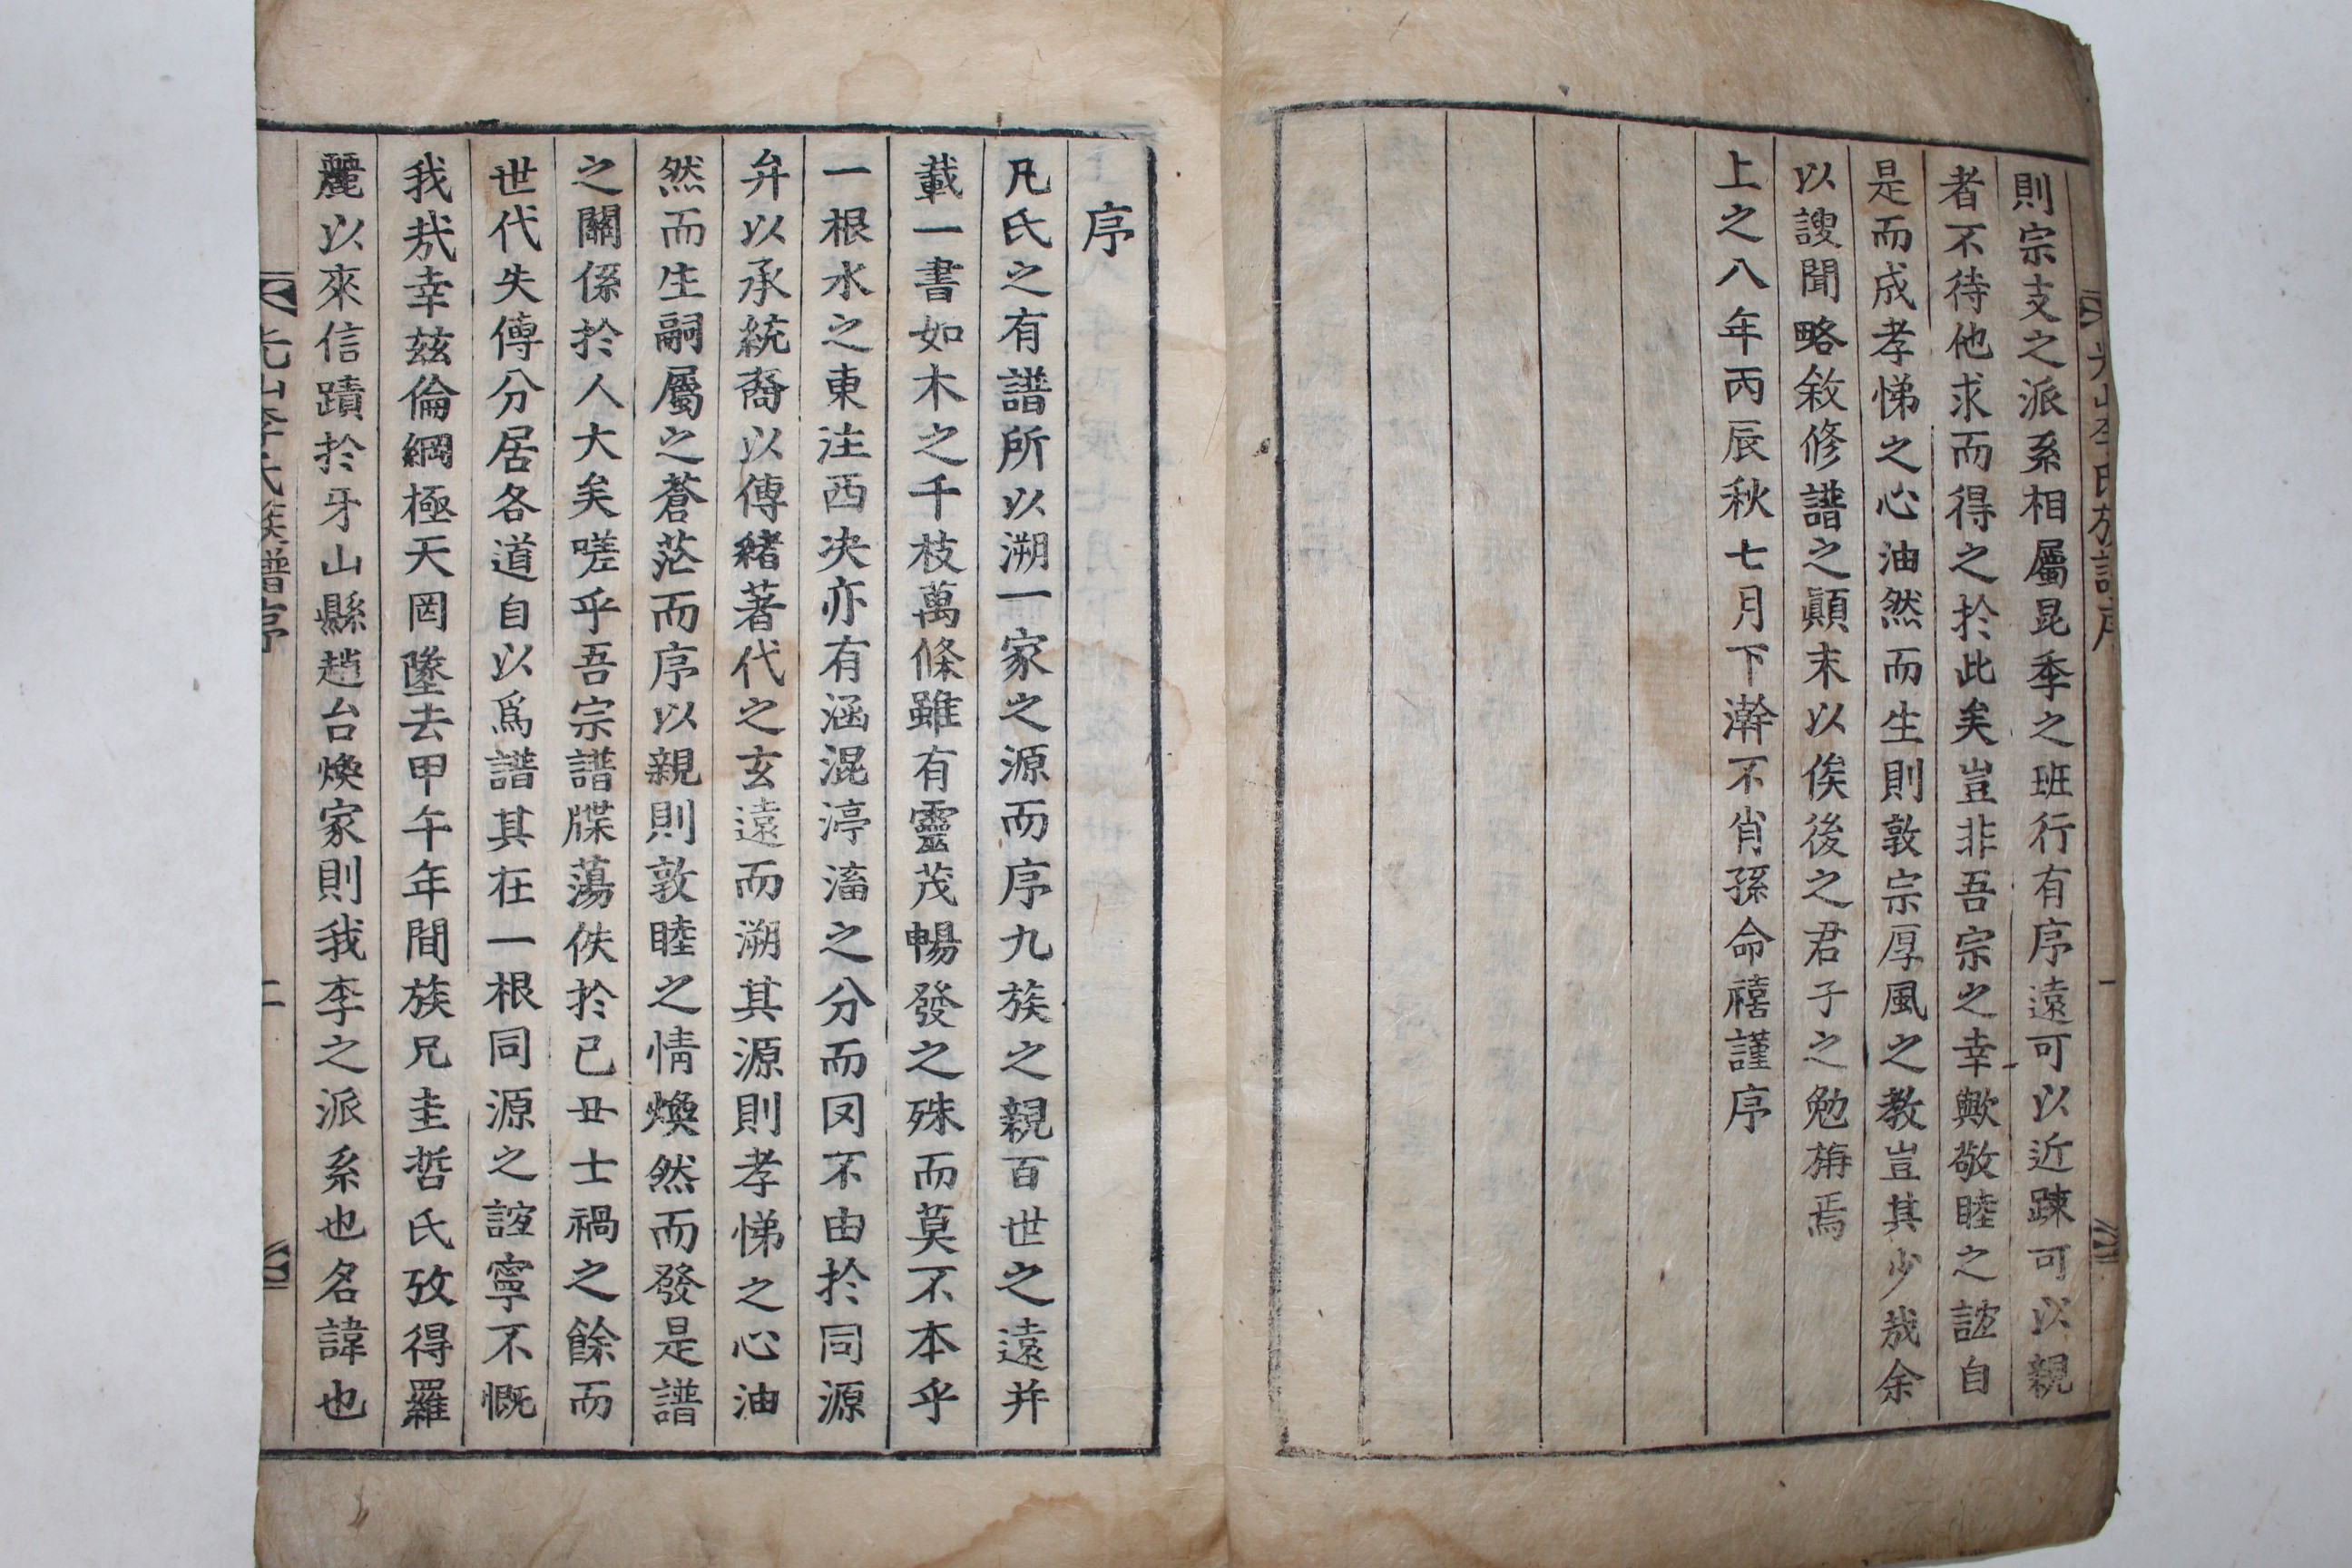 則宗支之派系相屬昆季之班行有序遠可以近踈可以親
者不待他求而得之於此矣豈非吾宗之幸歟敬睦之誼自
是而成孝悌之心油然而生則敦宗厚風之教豈其少哉余
以謏聞略敘修譜之顚末以俟後之君子之勉旃焉
上之八年丙辰秋七月下澣不肖孫命禧謹序
序
凡氏之有譜所以溯一家之源而序九族之親百世之遠并
載一書如木之千枝萬條雖有靈茂暢發之殊而莫不本乎
一根水之東注西决亦有涵混渟滀之分而罔不由於同源
弁以承統裔以傳緖著代之玄遠而溯其源則孝悌之心油
然而生嗣屬之蒼茫而序以親則敦睦之情煥然而發是譜
之關係於人大矣嗟乎吾宗譜牒蕩佚於己丑士禍之餘而
世代失傳分居各道自以爲譜其在一根同源之誼寧不慨
我㢤幸茲倫綱極天罔墜去甲午年間族兄圭哲氏攷得羅
麗以來信蹟於牙山縣趙台煥家則我李之派系也名諱也
光山李氏族譜序 二